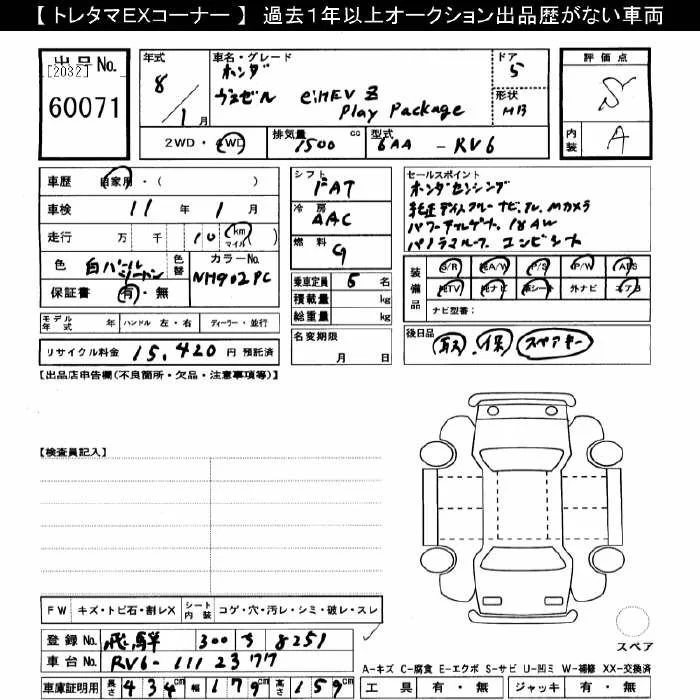 【 トレタマEXコーナー 】 過去1年以上オークション出品歴がない車両
出品 No.
[2032]
60071
年式
8 / 1 月
車名・グレード
ホンダ
ヴェゼル e:HEV Z
Play Package
ドア
5
形状
HB
評価点
S
内装
A
2WD・4WD
排気量
1500 cc
型式
6AA - RV6
車歴 自家用・( )
車検 11 年 1 月
走行 万 千 10 km マイル
色
色替
カラーNo.
NH902PC
保証書 有・無
モデル年式 年
ハンドル 左・右
ディーラー・並行
リサイクル料金 15,420 円 預託済
シフト
FAT
冷房
AAC
燃料
G
乗車定員 5 名
積載量 kg
総重量 kg
名変期限
月 日
セールスポイント
ホンダセンシング
純正ディスプレーナビ,TV,Mカメラ
パワーテールゲート,18AW
パノラマルーフ コンビシート
装備品
S/R 純A/W P/S P/W ABS
純TV 純ナビ 革シート 外ナビ エアB
ナビ型番:
後日品
取 . 保 スペアキー
【出品店申告欄(不良箇所・欠品・注意事項等)】
【検査員記入】
FW キズ・トビ石・割レX
シート内装 コゲ・穴・汚レ・シミ・破レ・スレ
登録 No. 飛騨 300 す 8251
車台 No. RV6-1112377
車庫証明用 長さ 434cm 幅 179cm 高さ 159cm
スペア
A-キズ C-腐食 E-エクボ S-サビ U-凹ミ W-補修 XX-交換済
工具 有・無
ジャッキ 有・無